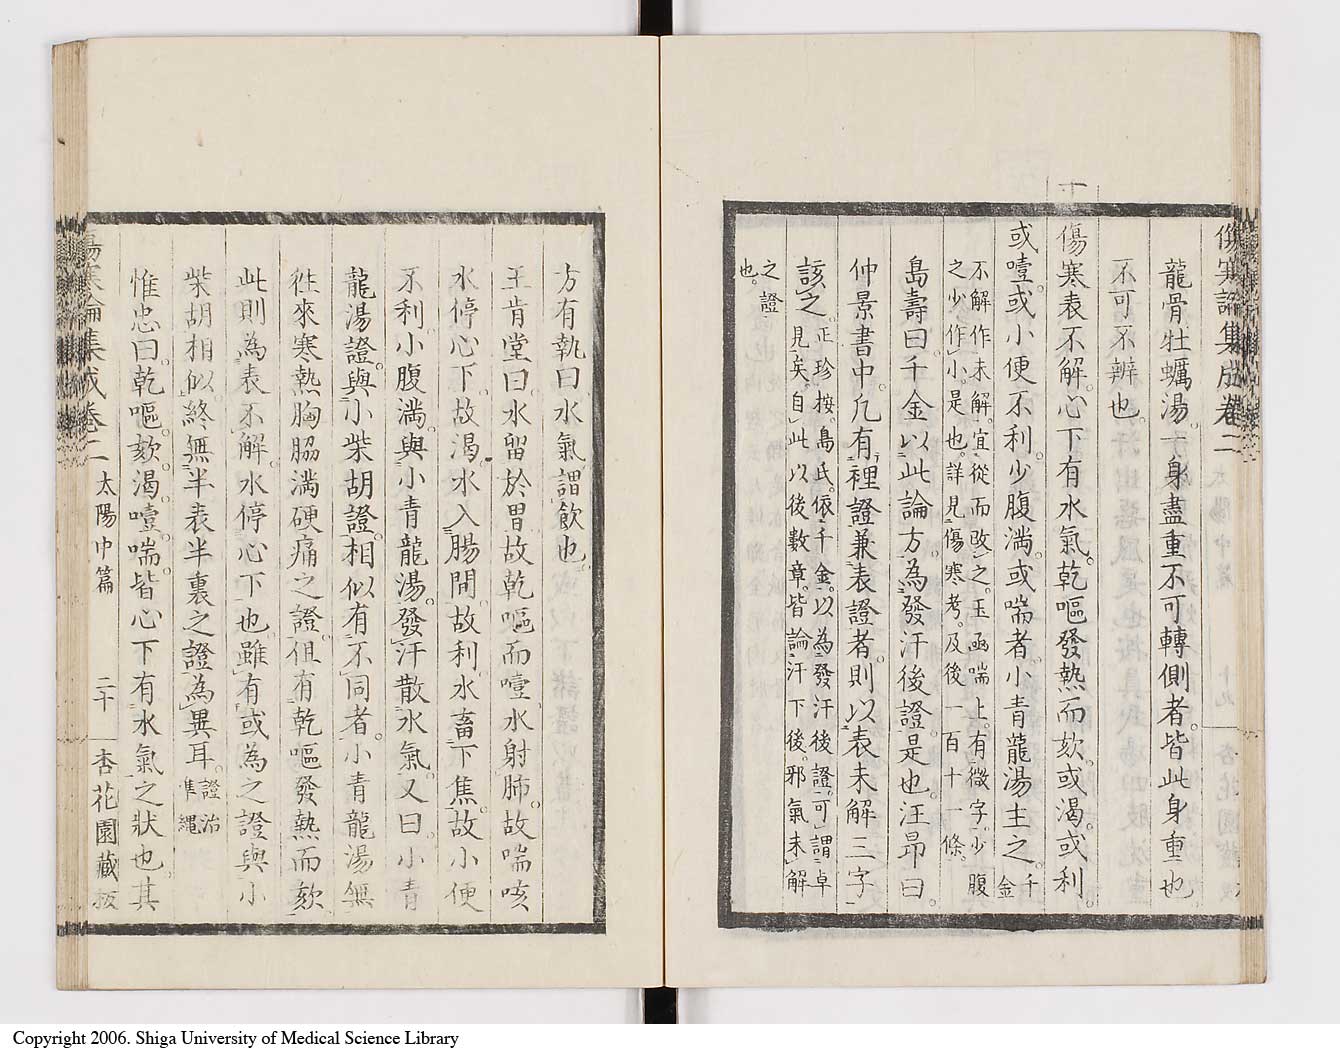 傷寒論集成卷二
龍骨牡蠣湯一身盡重不可轉側者皆此身重也
不可不辨也
傷寒表不解心下有水氣乾嘔發熱而欬或渴或利
或噎或小便不利少腹滿或喘者小青龍湯主之千金
不解作未解宜從而改之玉函喘上有微字少腹
之少作小是也詳見傷寒考及後一百十一條
島壽曰千金以此論方為發汗後證是也汪昂曰
仲景書中凡有裡證兼表證者則以表未解三字
該之正珍按島氏依千金以為發汗後證可謂卓
見矣自此以後數章皆論汗下後邪氣未解
之證
也
方有執曰水氣謂飲也
王肯堂曰水留於胃故乾嘔而噎水射肺故喘咳
水停心下故渴水入腸間故利水畜下焦故小便
不利小腹滿與小青龍湯發汗散水氣又曰小青
龍湯證與小柴胡證相似有不同者小青龍湯無
往來寒熱胸脇滿硬痛之證但有乾嘔發熱而欬
此則為表不解水停心下也雖有或為之證與小
柴胡相似終無半表半裏之證為異耳證治
準繩
惟忠曰乾嘔欬渴噎喘皆心下有水氣之狀也其
傷寒論集成卷二 太陽中篇 二十 杏花園藏板
Copyright 2006. Shiga University of Medical Science Library